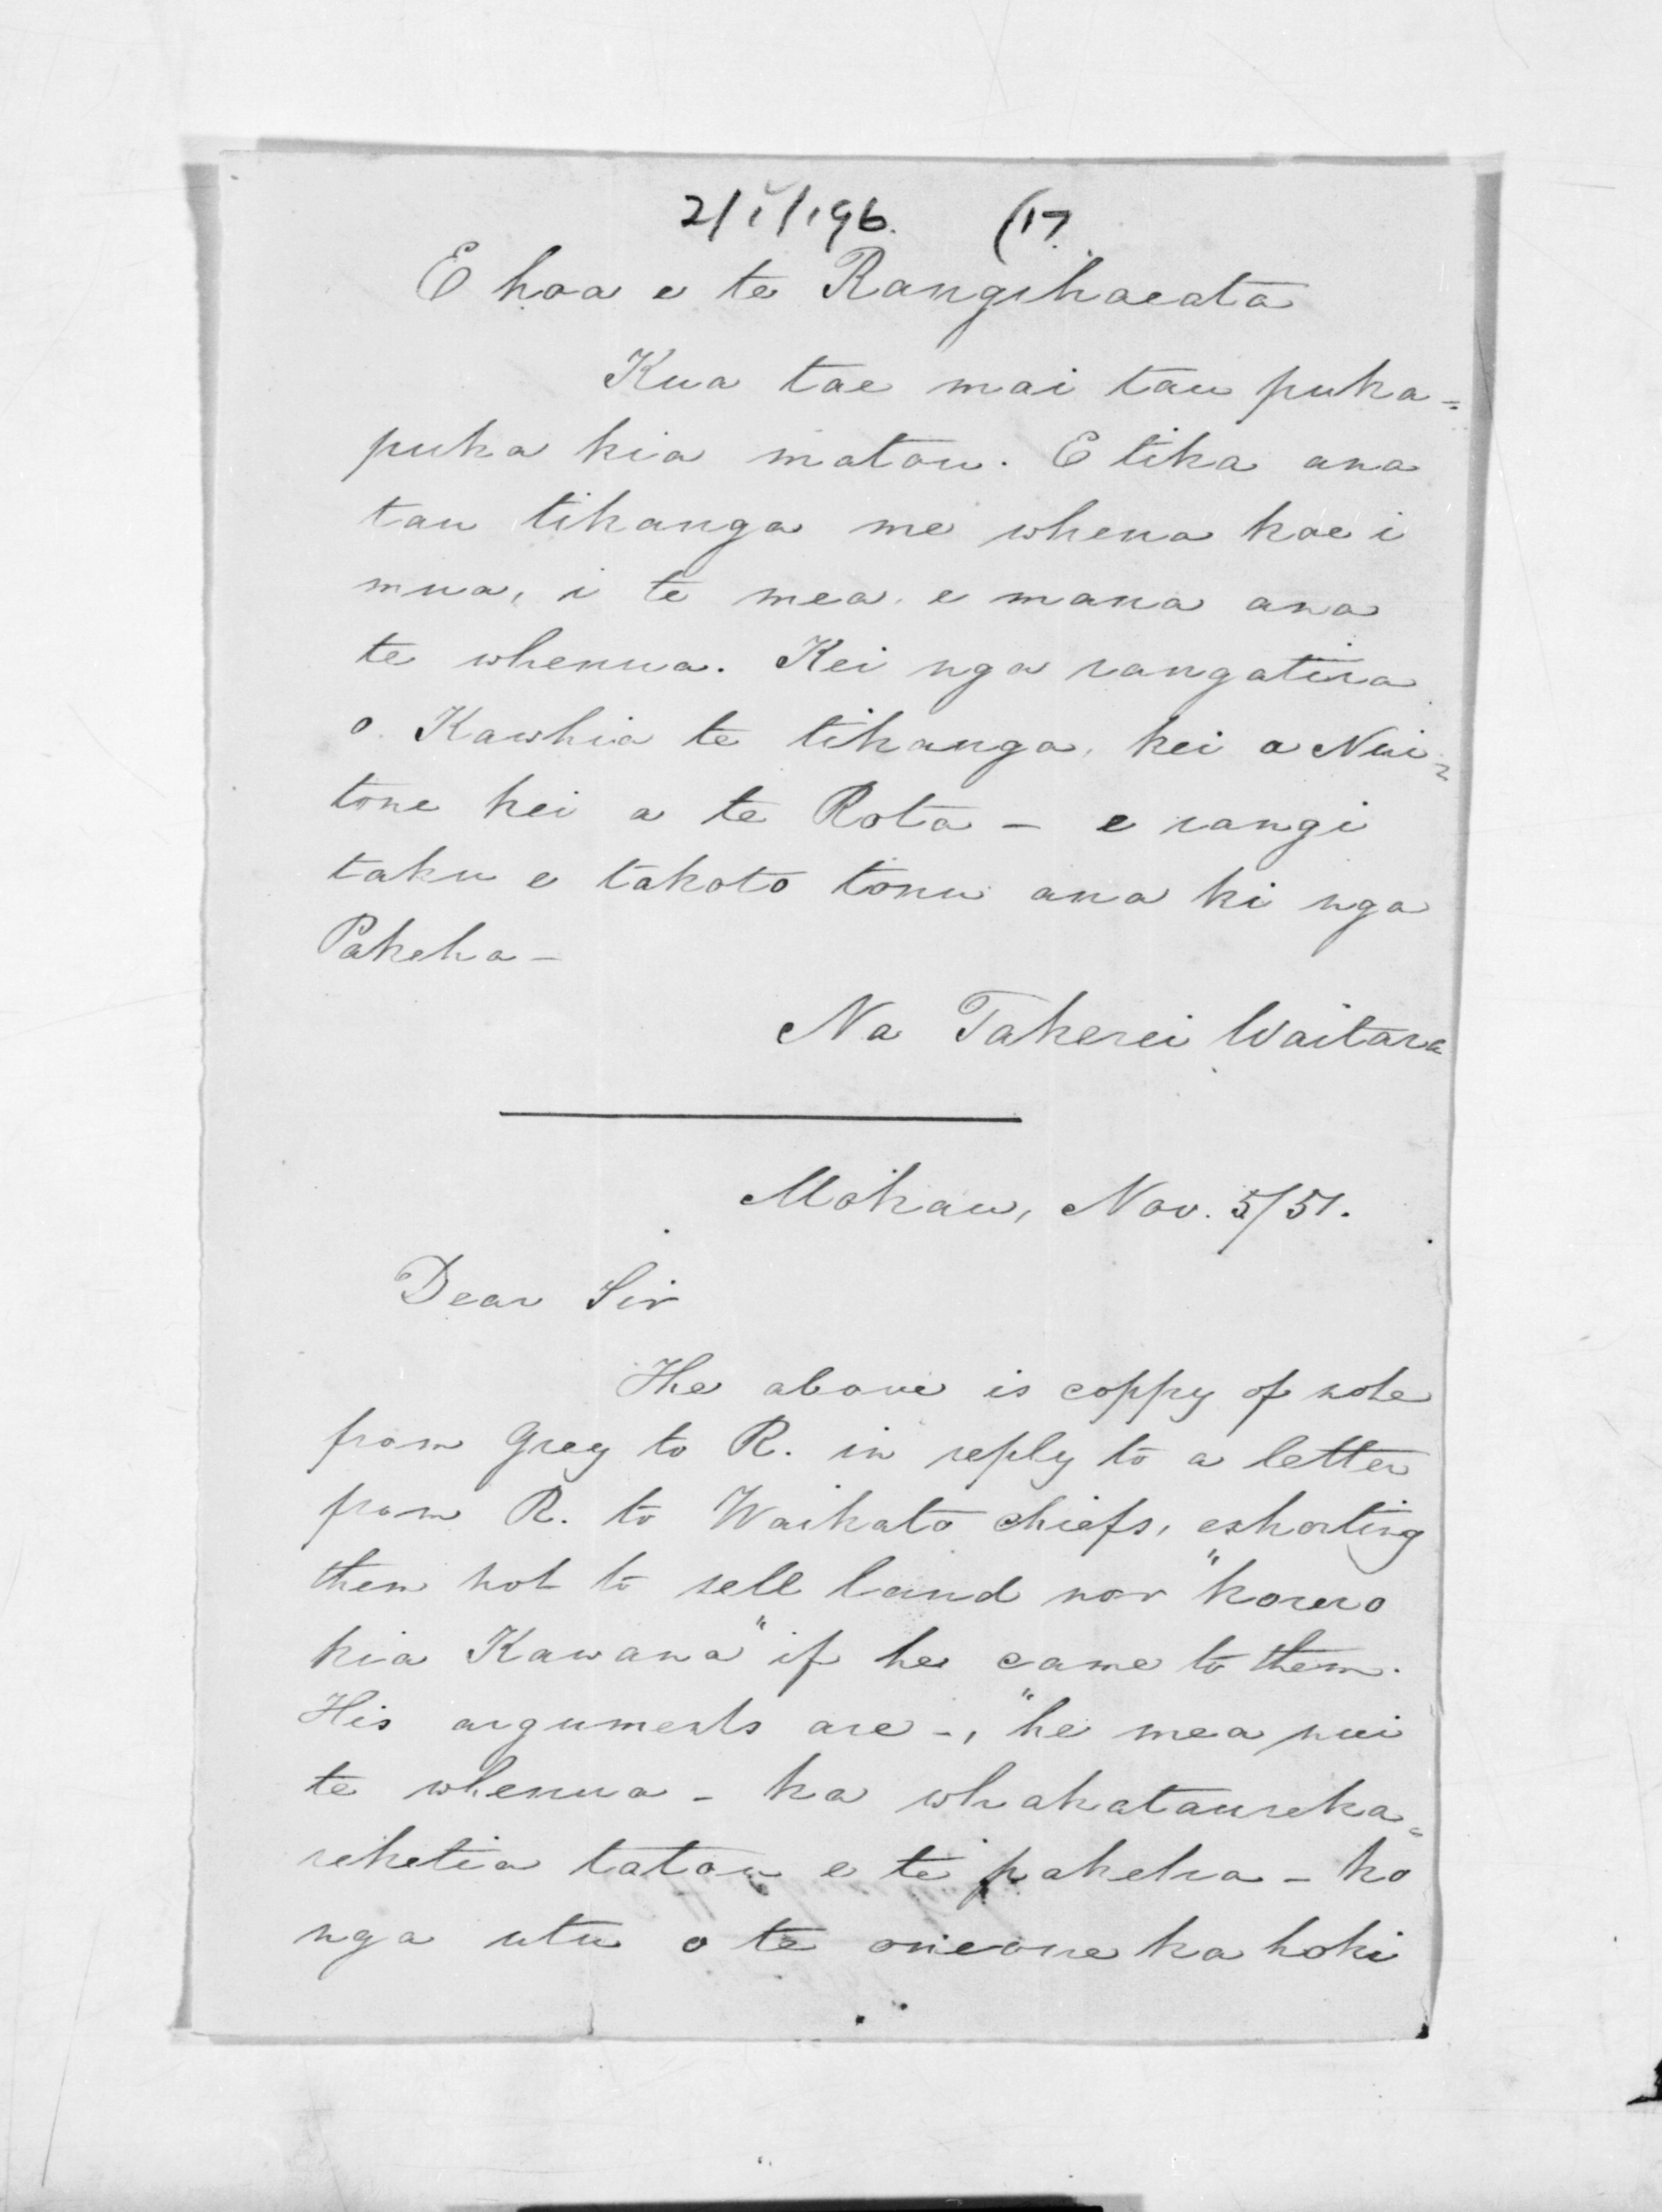 2/1/196. (17.
E hoa e te Rangihaeata
Kua tae mai tau puka=
puka kia matou. E tika ana
tau tikanga me whena koe i
mua, i te mea e mana ana
te whenua. Kei nga rangatira
o Kawhia te tikanga, kei a Nui=
tone kei a te Rota - e rangi
taku e takoto tonu ana ki nga
Pakeha -
Na Takerei Waitara
Mokau, Nov. 5/51.
Dear Sir
The above is coppy of note
from Grey to R. in reply to a letter
from R. to Waikato chiefs, exhorting
them not to sell land nor "korero
kia Kawana" if he came to them.
His arguments are -, "he mea nui
te whenua - ka whakataureka=
reketia tatou e te pakeha - ko
nga utu o te oneone ka hoki